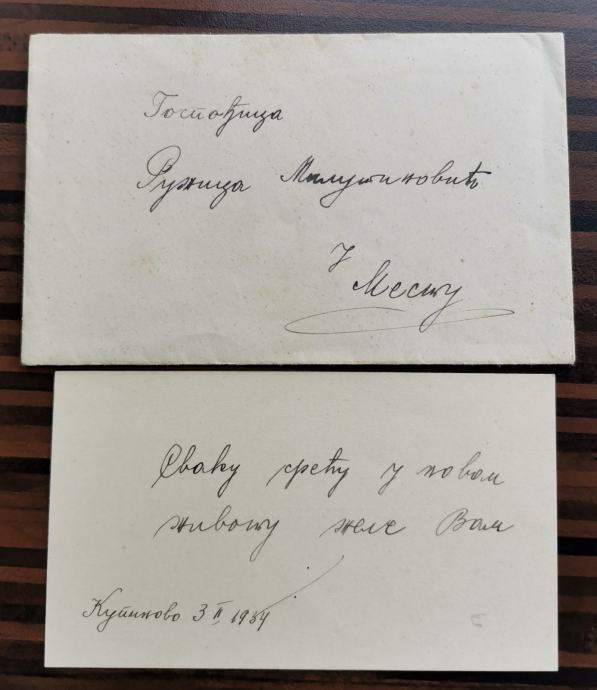 Госпођица
Ружица Милутиновић
У
Месту
Сваку срећу у новом
животу желе Вам
Купиново 3 II 1934